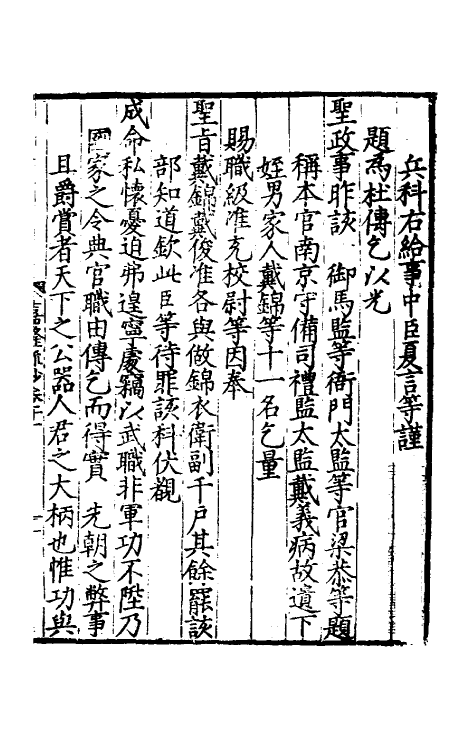 兵科右給事中臣夏言等謹
題為杜傳乞以光
聖政事昨該 御馬監等衙門太監等官梁恭等題
稱本官南京守備司禮監太監戴義病故遺下
姪男家人戴錦等十一名乞量
賜職級准充校尉等因奉
聖旨戴錦戴俊准各與做錦衣衛副千戶其餘罷該
部知道欽此臣等待罪該科伏覩
成命私懷憂迫弗遑寧處竊以武職非軍功不陞乃
國家之令典官職由傳乞而得實 先朝之弊事
且爵賞者天下之公器人君之大柄也惟功與